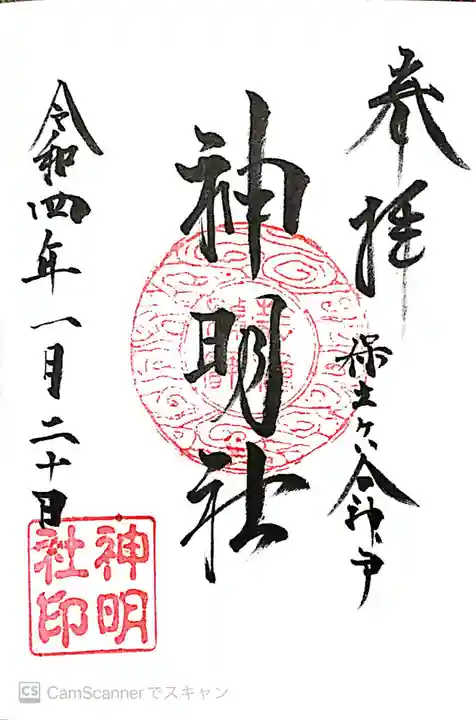 奉拝
保土ケ谷神戸
神明社
令和四年一月二十日
神明
社印
CS CamScannerでスキャン